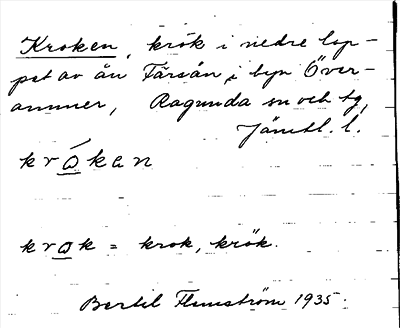 Kroken, krök i nedre lop-
pet av ån Färsån, i byn Över-
ammer, Ragunda sn och tg,
Jämtl. l.
krɷ́kan
krɷk = krok, krök.
Bertil Flemström 1935.